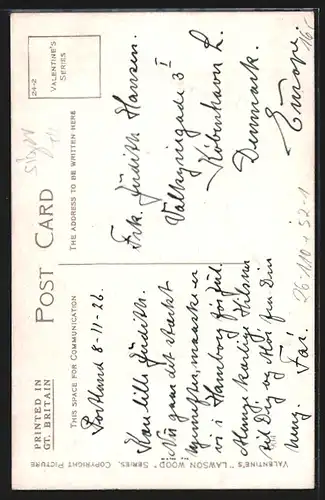 PRINTED IN
GT. BRITAIN
POST CARD
THIS SPACE FOR COMMUNICATION
THE ADDRESS TO BE WRITTEN HERE
24-2
VALENTINE'S
SERIES
VALENTINE'S "LAWSON WOOD" SERIES. COPYRIGHT PICTURE
Portland 8-11-26.
Kære lille Judith.
Nu gaar det stærkt
hjemefter, maaske er
vi i Hamborg før Jul.
Mange kærlige Hilsner
til Dig og Mor fra Din
Far.
Frk. Judith Hansen.
Valkyriegade 3 I
København L.
Denmark.
Europe.
16,-